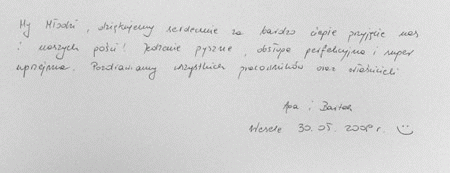 My Młodzi, dziękujemy serdecznie za bardzo ciepłe przyjęcie nas
i naszych gości! Jedzenie pyszne, obsługa perfekcyjna i super
uprzejma. Pozdrawiamy wszystkich pracowników oraz właścicieli
Aga i Bartek
Wesele 30.05.2009 r. ☺